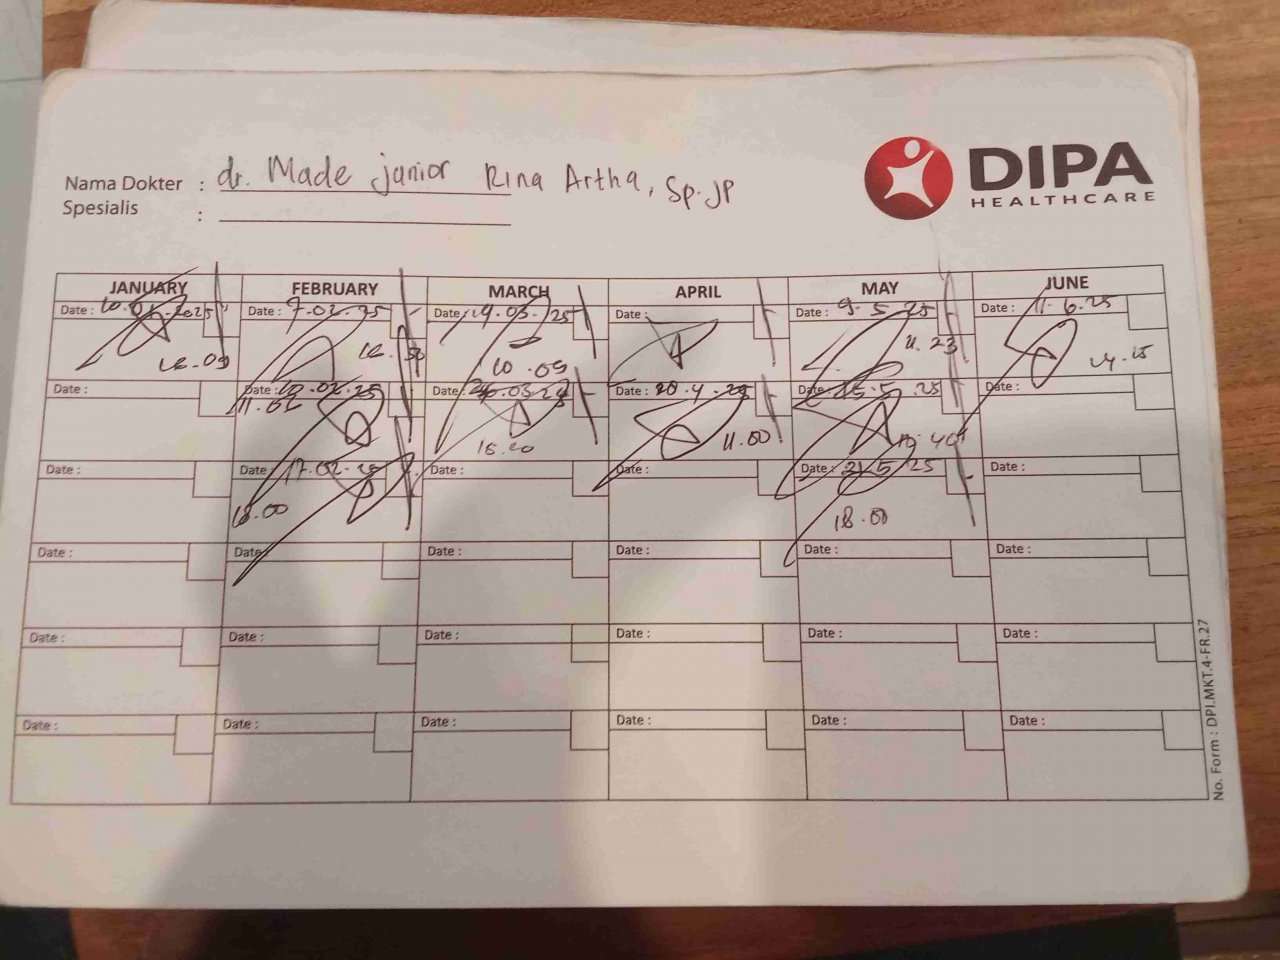 DIPA
HEALTHCARE
Nama Dokter : dr. Made junior Rina Artha, Sp.JP
Spesialis :
JANUARY FEBRUARY MARCH APRIL MAY JUNE
Date : 10.01.2025 Date : 7.02.25 Date : 19.03.25 Date : Date : 9.5.25 Date : 11.6.25
16.09 10.09 11.23 14.15
Date : Date : 10.02.25 Date : 26.03.25 Date : 20.4.25 Date : 15.5.25 Date :
11.02 15.20 11.00
Date : Date : 17.02.25 Date : Date : Date : 21.5.25 Date :
18.00 18.00
Date : Date Date : Date : Date : Date :
Date : Date : Date : Date : Date : Date :
Date : Date : Date : Date : Date : Date :
No. Form : DPI.MKT.4-FR.27